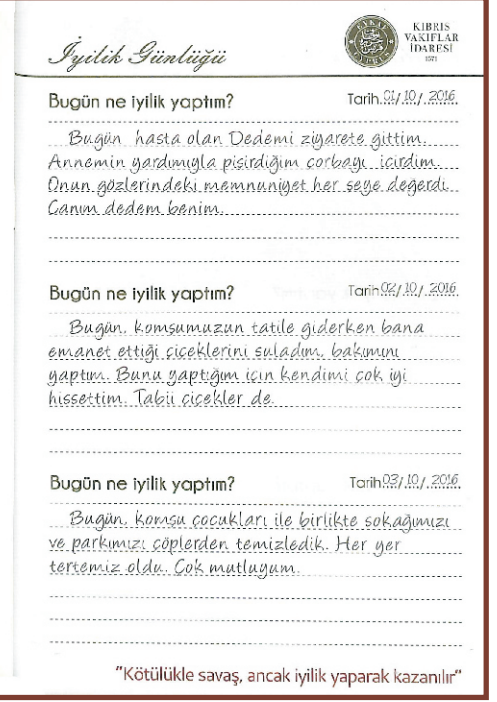 KIBRIS
VAKIFLAR
İDARESİ
1571
İyilik Günlüğü
Bugün ne iyilik yaptım? Tarih 01/10/2016
Bugün hasta olan Dedemi ziyarete gittim.
Annemin yardımıyla pişirdiğim çorbayı içirdim.
Onun gözlerindeki memnuniyet her şeye değerdi.
Canım dedem benim.
Bugün ne iyilik yaptım? Tarih 02/10/2016
Bugün, komşumuzun tatile giderken bana
emanet ettiği çiçeklerini suladım, bakımını
yaptım. Bunu yaptığım için kendimi çok iyi
hissettim. Tabii çiçekler de.
Bugün ne iyilik yaptım? Tarih 03/10/2016
Bugün, komşu çocukları ile birlikte sokağımızı
ve parkımızı çöplerden temizledik. Her yer
tertemiz oldu. Çok mutluyum.
"Kötülükle savaş, ancak iyilik yaparak kazanılır"